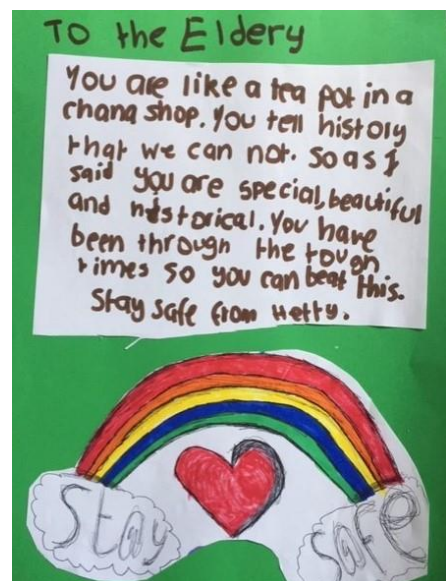 To the Eldery
You are like a tea pot in a
chana shop. You tell history
that we can not. So as I
said you are special, beautiful
and historical. You have
been through the tough
times so you can beat this.
Stay safe from Hetty.
Stay safe